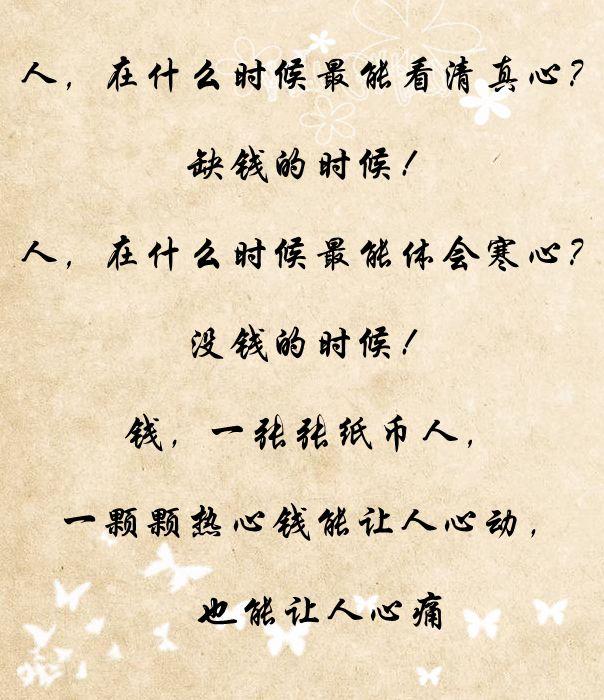 人，在什么时候最能看清真心？
缺钱的时候！
人，在什么时候最能体会寒心？
没钱的时候！
钱，一张张纸币人，
一颗颗热心钱能让人心动，
也能让人心痛